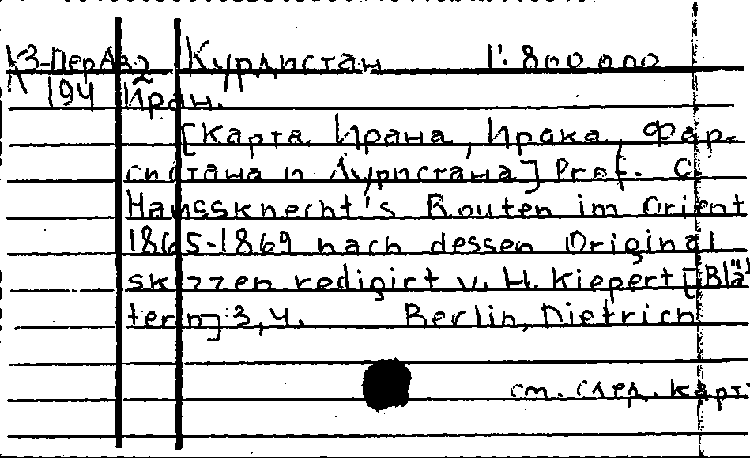 К3-ПерАз2 Курдистан 1:800.000
К 194 Иран.
[Карта Ирана, Ирака, Фар-
систана и Луристана] Prof. C.
Haussknecht's Routen im Orient
1865-1869 nach dessen Original
skizzen redigirt v. H. Kiepert [Blä
tern] 3,4. Berlin, Dietrich
см. след. карт